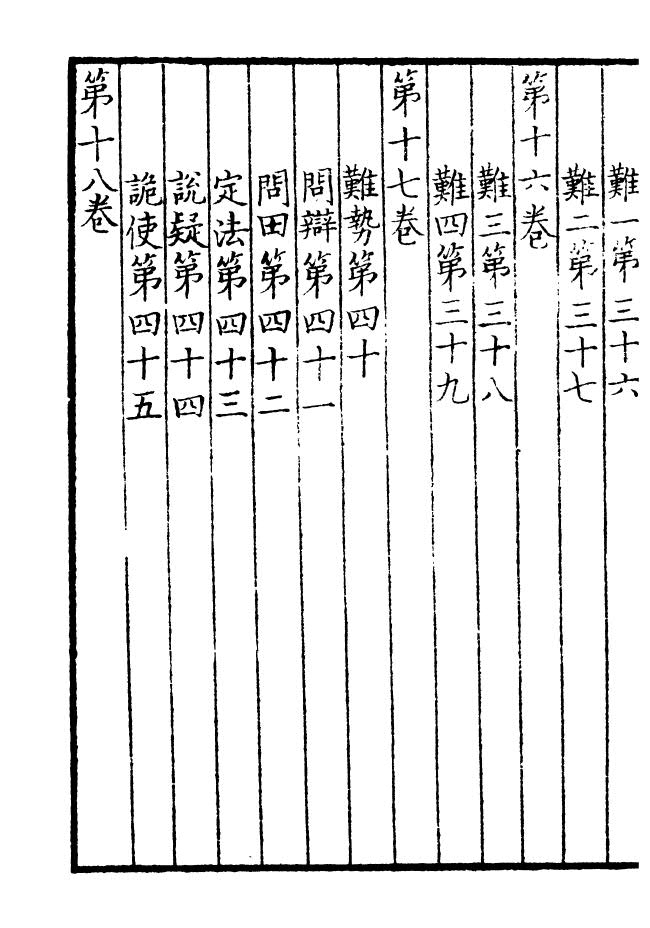 難一第三十六
難二第三十七
第十六卷
難三第三十八
難四第三十九
第十七卷
難勢第四十
問辯第四十一
問田第四十二
定法第四十三
說疑第四十四
詭使第四十五
第十八卷